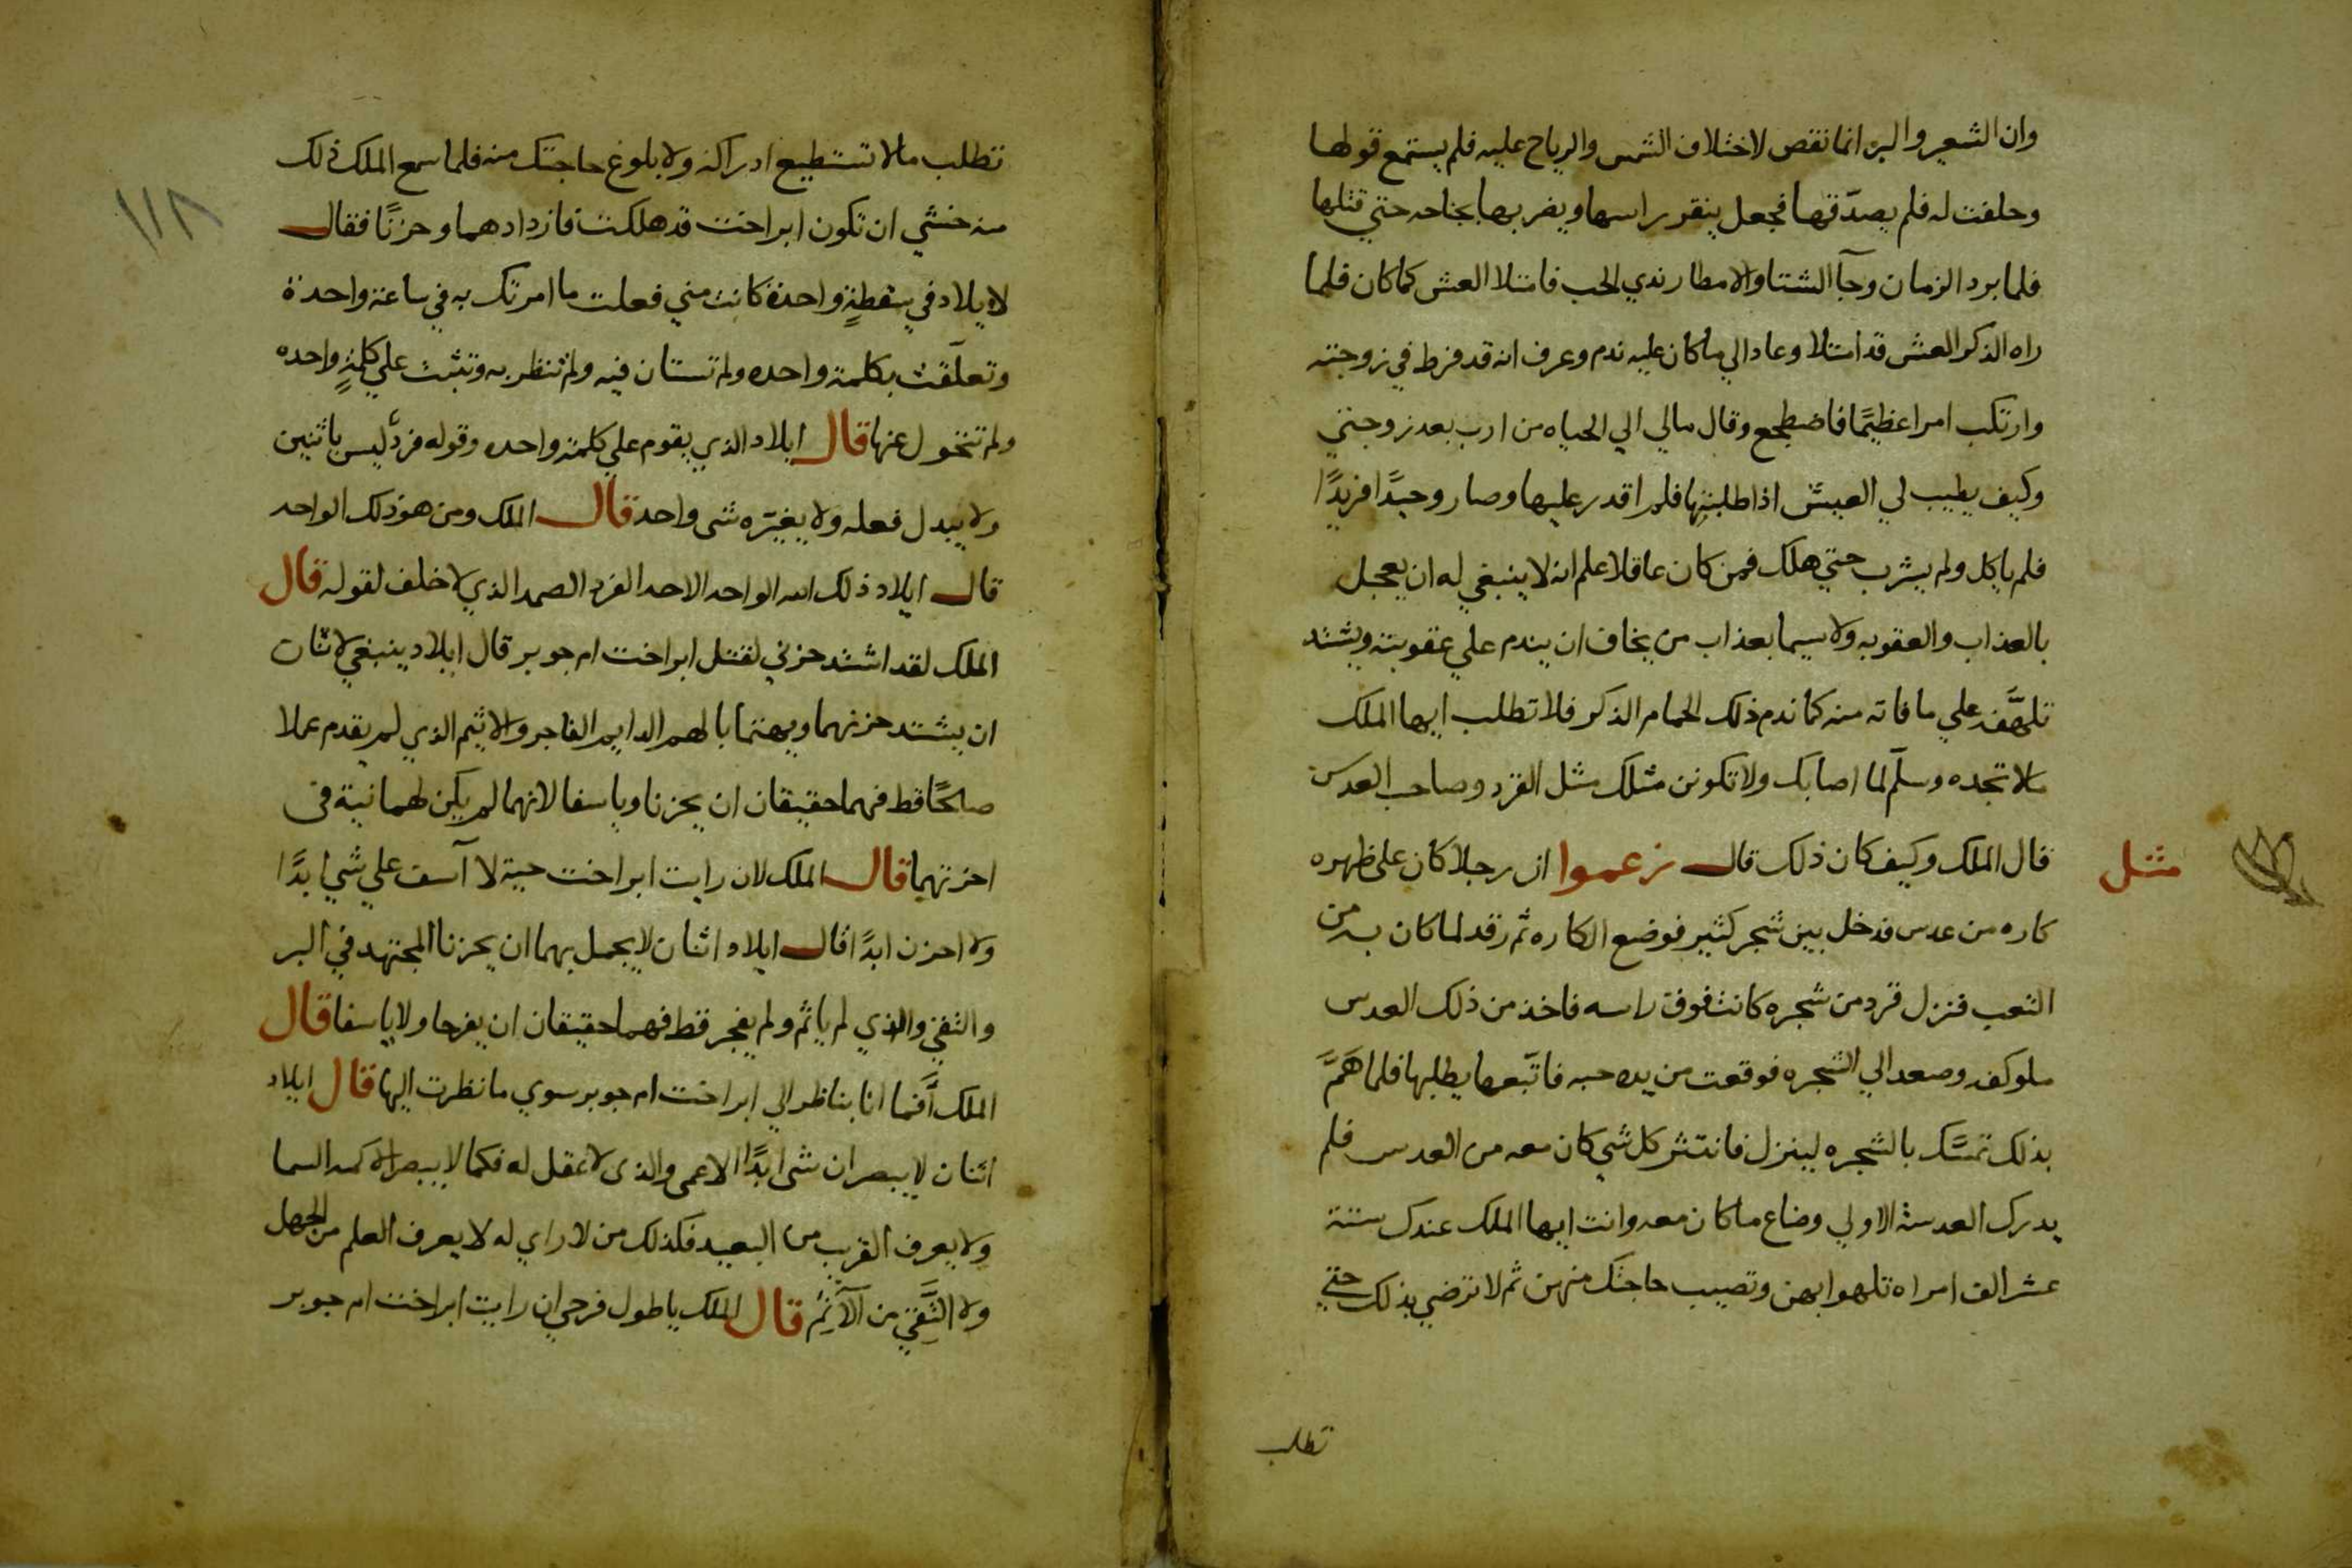 وان الشعير والبر انما نقص لاختلاف الشمس والرياح عليه فلم يستمع قولها
وحلفت له فلم يصدّقها فجعل ينقر راسها ويضربها بجناحه حتي قتلها
فلما برد الزمان وجآ الشتا والامطار ندي الحب فامتلا العش كما كان فلما
راه الذكر العش قد امتلا وعاد الي ما كان عليه ندم وعرف انه قد فرط في زوجته
وارتكب امرا عظيمًا فاضطجع وقال مالي الي الحياه من ارب بعد زوجتي
وكيف يطيب لي العيش اذا طلبتها فلم اقدر عليها وصار وحيدًا فريدًا
فلم ياكل ولم يشرب حتي هلك فمن كان عاقلا علم انه لا ينبغي له ان يعجل
بالعذاب والعقوبه ولا سيما بعذاب من يخاف ان يندم علي عقوبته ويشتد
تلهّفه علي ما فاته منه كما ندم ذلك الحمام الذكر فلا تطلب ايها الملك
مالا تجده وسلّم لما اصابك ولا تكونن مثلك مثل القرد وصاحب العدس
مثل
قال الملك وكيف كان ذلك قال زعموا ان رجلا كان على ظهره
كاره من عدس فدخل بين شجر كثير فوضع الكاره ثم رقد لما كان به من
التعب فنزل قرد من شجره كانت فوق راسه فاخذ من ذلك العدس
ملو كفه وصعد الي الشجره فوقعت من يده حبه فاتّبعها يطلبها فلما همَّ
بذلك تمسّك بالشجره لينزل فانتثر كل شي كان معه من العدس فلم
يدرك العدسة الاولي وضاع ما كان معه وانت ايها الملك عندك ستة
عشر الف امراه تلهوا بهن وتصيب حاجتك منهن ثم لا ترضي بذلك حتي
تطلب
١١٨
تطلب مالا تستطيع ادراكه ولا بلوغ حاجتك منه فلما سمع الملك ذلك
منه خشي ان تكون ابراخت قد هلكت فازداد هما وحزنًا فقال
لايلاد في سقطةٍ واحدة كانت مني فعلت ما امرتك به في ساعة واحدة
وتعلّقت بكلمة واحده ولم تستان فيه ولم تنظر به وتثبت علي كلمةٍ واحده
ولم تتحول عنها قال ايلاد الذي يقوم علي كلمة واحده وقوله فردٌ ليس باثنين
ولا يبدل فعله ولا يغيّره شى واحد قال الملك ومن هو ذلك الواحد
قال ايلاد ذلك الله الواحد الاحد الفرد الصمد الذي لا خلف لقوله قال
الملك لقد اشتد حزني لقتل ابراخت ام جوبر قال ايلاد ينبغي لاثنان
ان يشتد حزنهما ويهتما بالهم الدايم الفاجر والاثيم الذي لم يقدم عملا
صالحًا قط فهما حقيقان ان يحزنا وياسفا لانهما لم يكن لهما نية في
اخرتهما قال الملك لان رايت ابراخت حية لا آسف علي شي ابدًا
ولا احزن ابدًا قال ايلاد اثنان لا يجمل بهما ان يحزنا المجتهد في البر
والتقي والذي لم ياثم ولم يفجر قط فهما حقيقان ان يفرحا ولا ياسفا قال
الملك أَفما انا بناظر الي ابراخت ام جوبر سوي ما نظرت اليها قال ايلاد
اثنان لا يبصران شى ابدًا الاعمى والذى لا عقل له فكما لا يبصر السما
ولا يعرف القريب من البعيد فكذلك من لا راي له لا يعرف العلم من الجهل
ولا التَّقي من الآثِم قال الملك يا طول فرحي ان رايت ابراخت ام جوبر